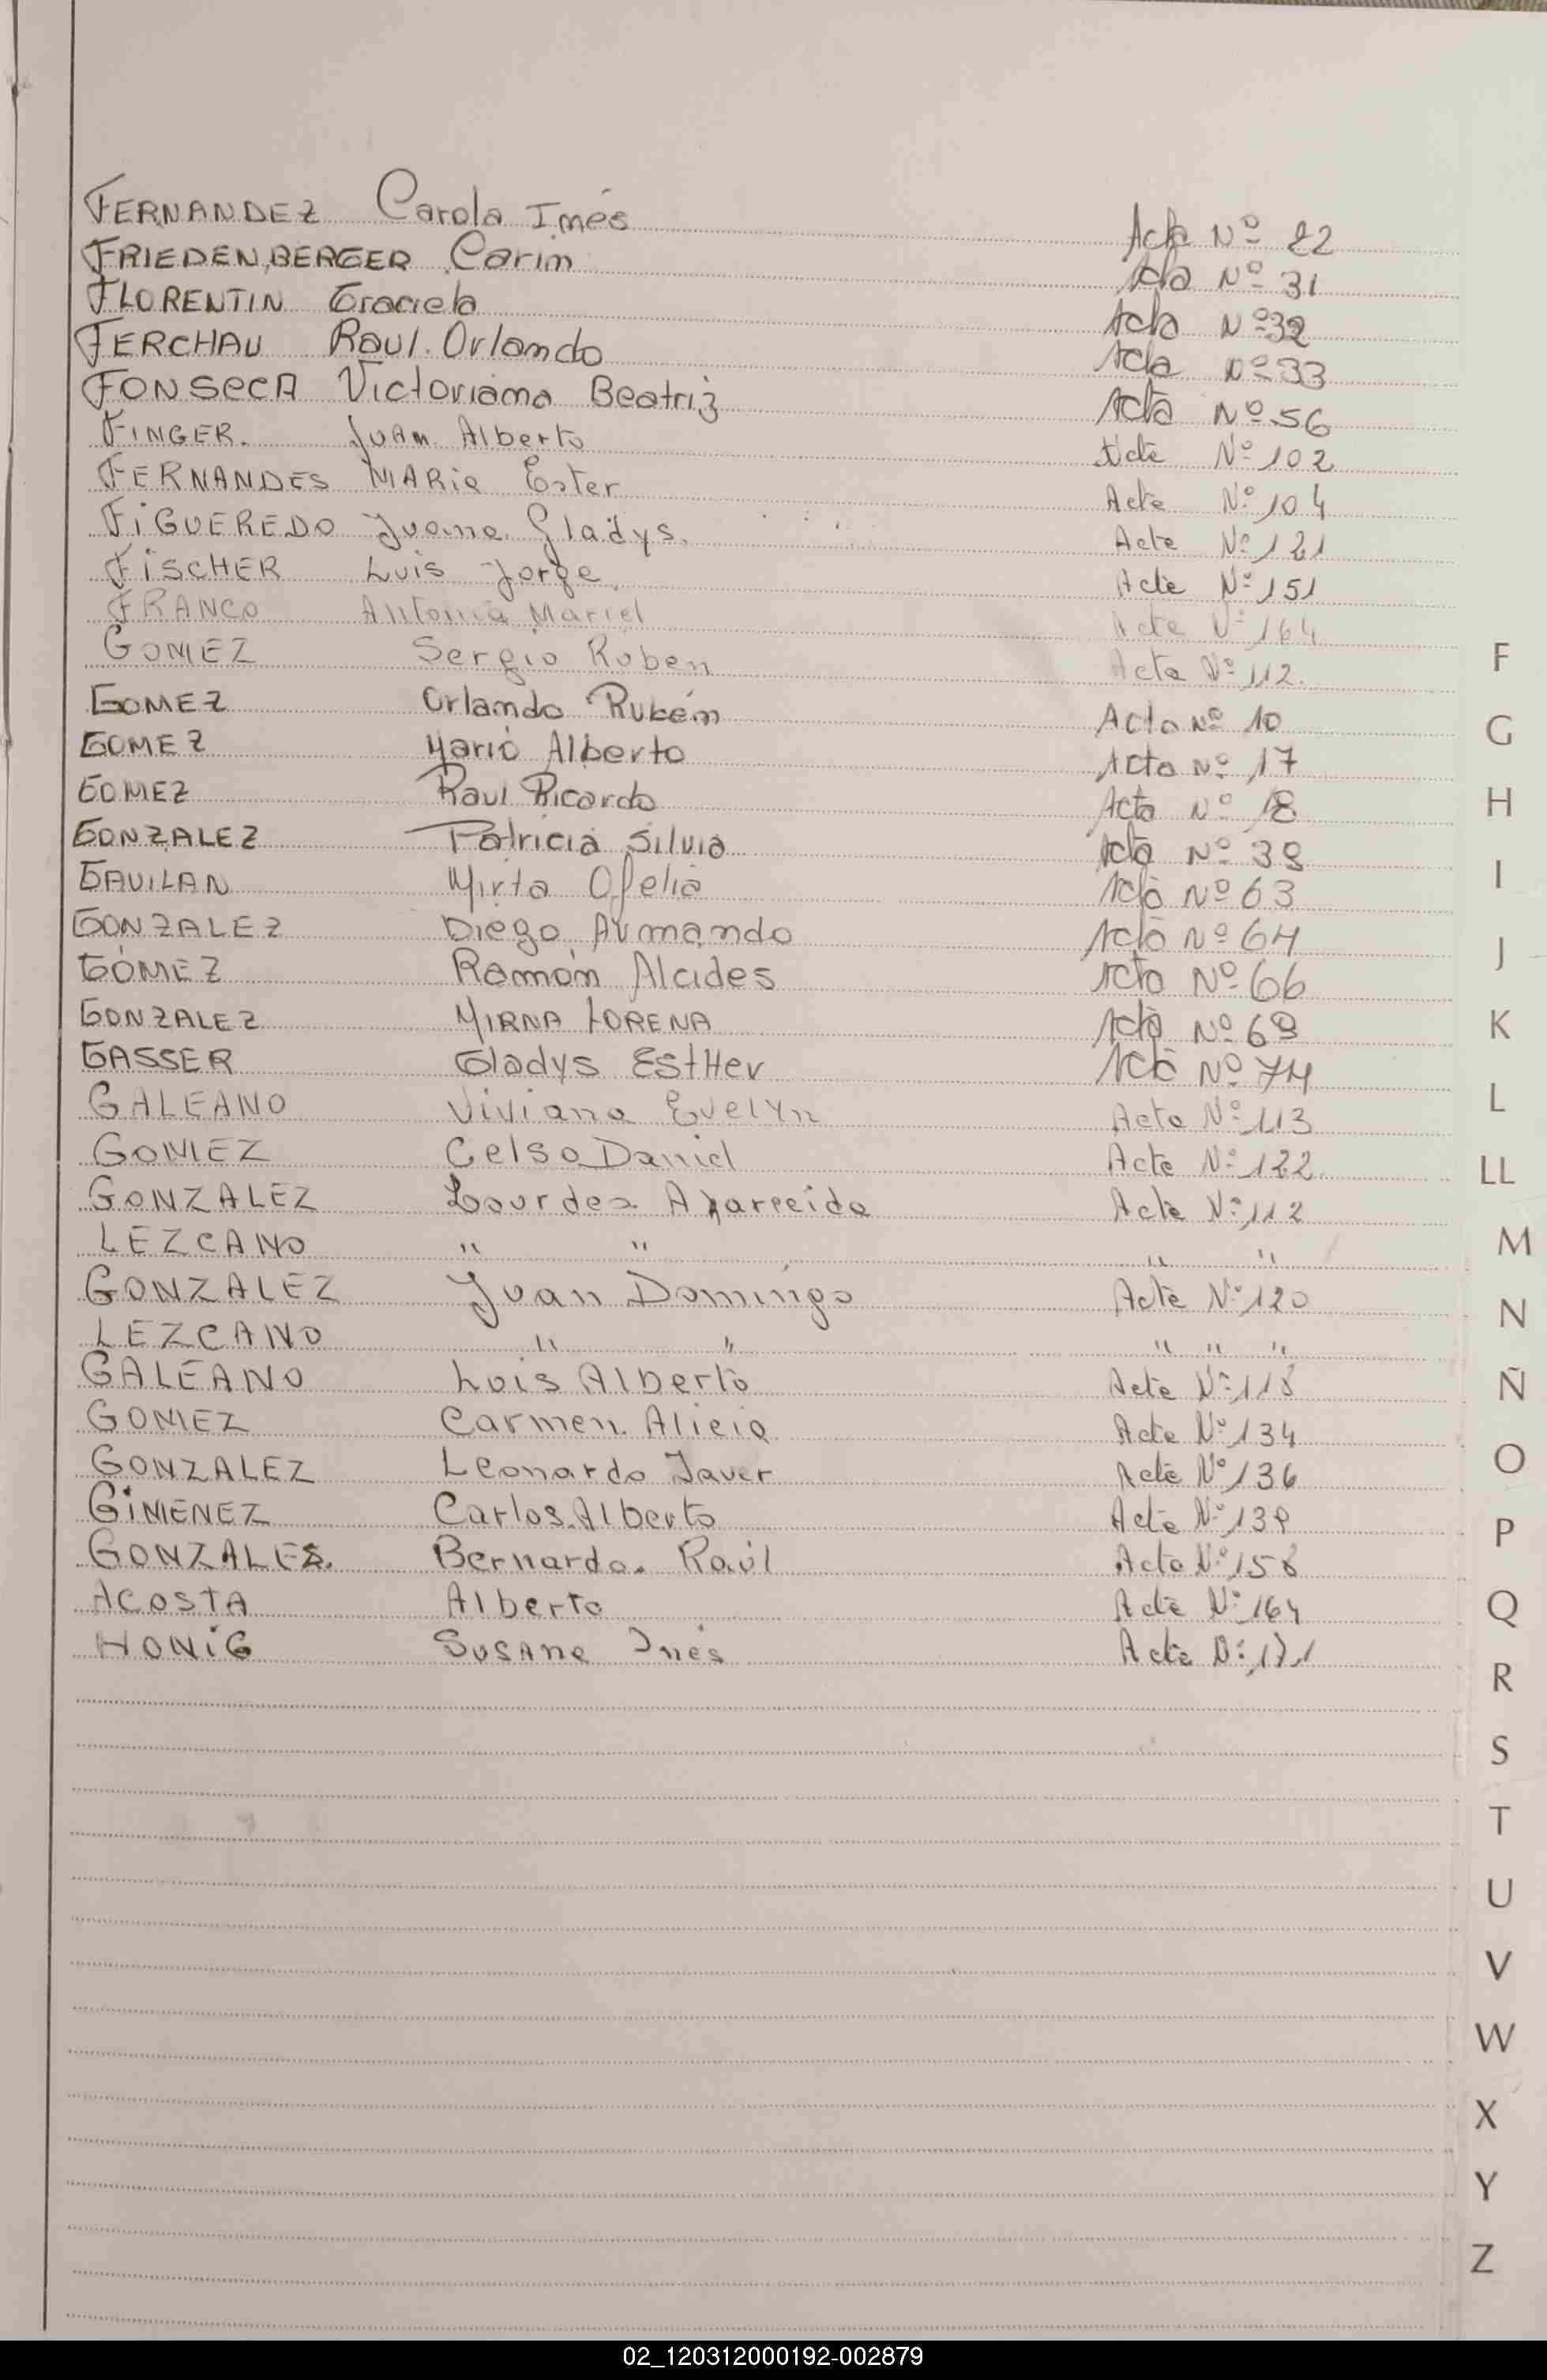 FERNANDEZ Carola Inés Acta Nº 22
FRIEDENBERGER Carin Acta Nº 31
FLORENTIN Graciela Acta Nº 32
FERCHAU Raul Orlando Acta Nº 33
FONSECA Victoriana Beatriz Acta Nº 56
FINGER. Juan Alberto Acta Nº 102
FERNANDES MARIA Ester Acta Nº 104
FIGUEREDO Juana Gladys. Acta Nº 121
FISCHER Luis Jorge Acta Nº 151
FRANCO Antonia Mariel Acta Nº 164
GOMEZ Sergio Ruben Acta Nº 112.
F
GOMEZ Orlando Rubén Acta Nº 10
G
GOMEZ Mario Alberto Acta Nº 17
GOMEZ Raul Ricardo Acta Nº 18
H
GONZALEZ Patricia Silvia Acta Nº 39
GAVILAN Mirta Ofelia Acta Nº 63
I
GONZALEZ Diego Armando Acta Nº 64
J
GÓMEZ Ramón Alcides Acta Nº 66
GONZALEZ MIRNA LORENA Acta Nº 69
K
GASSER Gladys EstHer Acta Nº 74
GALEANO Viviana Evelyn Acta Nº 113
L
GOMEZ Celso Daniel Acta Nº 122
LL
GONZALEZ Lourdes Aparecida Acta Nº 112
LEZCANO " " " "
M
GONZALEZ Juan Domingo Acta Nº 120
N
LEZCANO " " " " "
GALEANO Luis Alberto Acta Nº 118
Ñ
GOMEZ Carmen Alicia Acta Nº 134
GONZALEZ Leonardo Javer Acta Nº 136
O
GIMENEZ Carlos Alberto Acta Nº 139
P
GONZALES. Bernardo. Raúl Acta Nº 158
ACOSTA Alberto Acta Nº 164
Q
HONIG Susana Inés Acta Nº 171
R
S
T
U
V
W
X
Y
Z
02_120312000192-002879